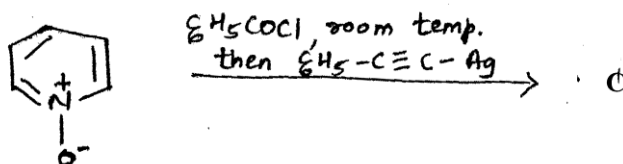 C6H5COCl, room temp.
then C6H5-C≡C-Ag
N+
O-